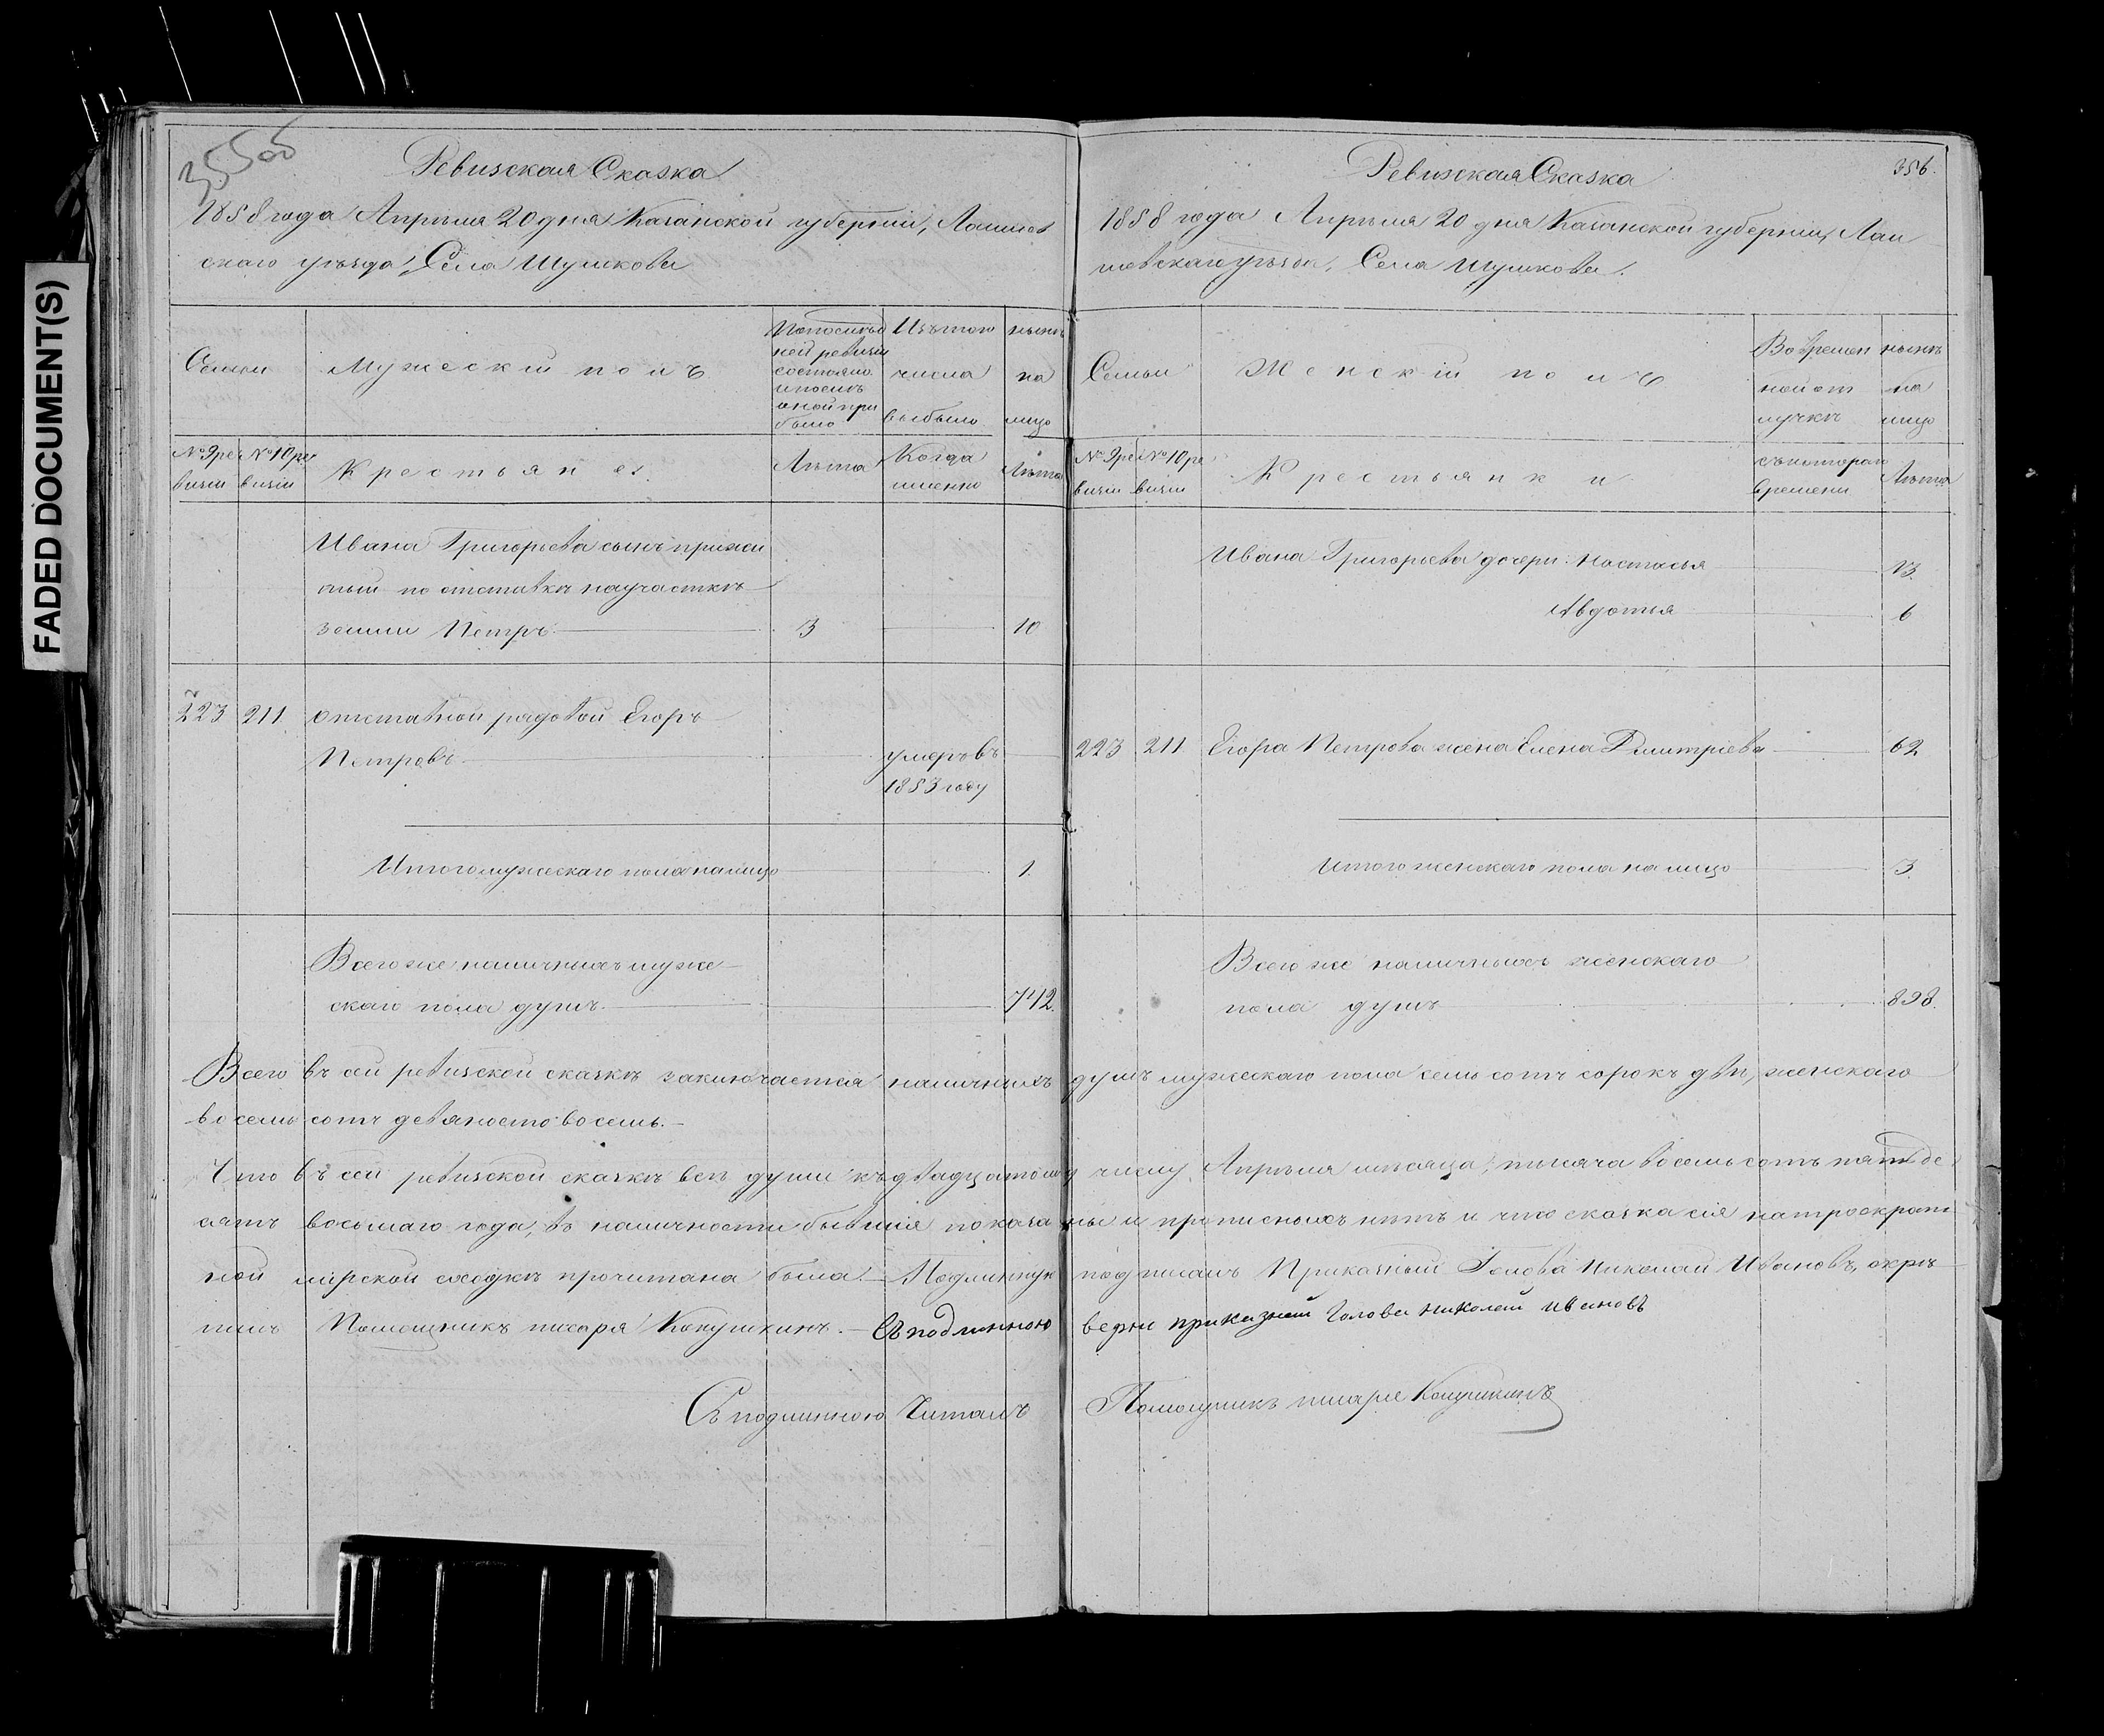 FADED DOCUMENT(S)
355 об
Ревизская Сказка
1858 года Апрѣля 20 дня Казанской губерніи, Лаишев
скаго уѣзда, Села Шумкова
Семьи
Мужескій полъ
Попослѣд
ней ревизіи
состояло
и послѣ
оной при
было
Изъ того
числа
выбыло
нынѣ
на
лицо
№ 9 ре
визіи
№ 10 ре
визіи
Крестьяне
Лѣта
Когда
именно
Лѣта
Ивана Григорьева сынъ прижи
тый по отставкѣ на участкѣ
земли Петръ 3 10
223 211 отставной рядовой Егоръ
Петровъ умеръ въ
1853 году
Итого мужескаго пола на лицо 1
Всего же наличныхъ муже
скаго пола душъ 742.
Ревизская Сказка
356.
1858 года Апрѣля 20 дня Казанской губерніи, Лаи
шевскаго уѣзда, Села Шумкова.
Семьи
Женскій полъ
Во времен
ной от
лучкѣ
нынѣ
на
лицо
№ 9 ре
визіи
№ 10 ре
визіи
Крестьянки
съ котораго
времени
Лѣта
Ивана Григорьева дочери: Настасья 13
Авдотья 6
223 211 Егора Петрова жена Елена Дмитріева 62
Итого женскаго пола на лицо 3
Всего же наличныхъ женскаго
пола душъ 898.
Всего въ сей ревизской сказкѣ заключается наличныхъ душъ мужескаго пола семь сотъ сорокъ двѣ, женскаго
восемь сотъ девяносто восемь.
Что въ сей ревизской сказкѣ всѣ души къ двадцатому числу Апрѣля мѣсяца, тысяча восемь сотъ пятьде
сятъ восьмаго года, въ наличности бывшія показаны и прописныхъ нѣтъ и что сказка сія на троекрат
ной мірской сходкѣ прочитана была. Подлинную подписалъ Приказный Голова Николай Ивановъ, скрѣ
пилъ Помощникъ писаря Кокушкинъ. — Съ подлинною верна приказной Голова Николай Ивановъ
Съ подлинною Читалъ Помощникъ писаря Кокушкинъ